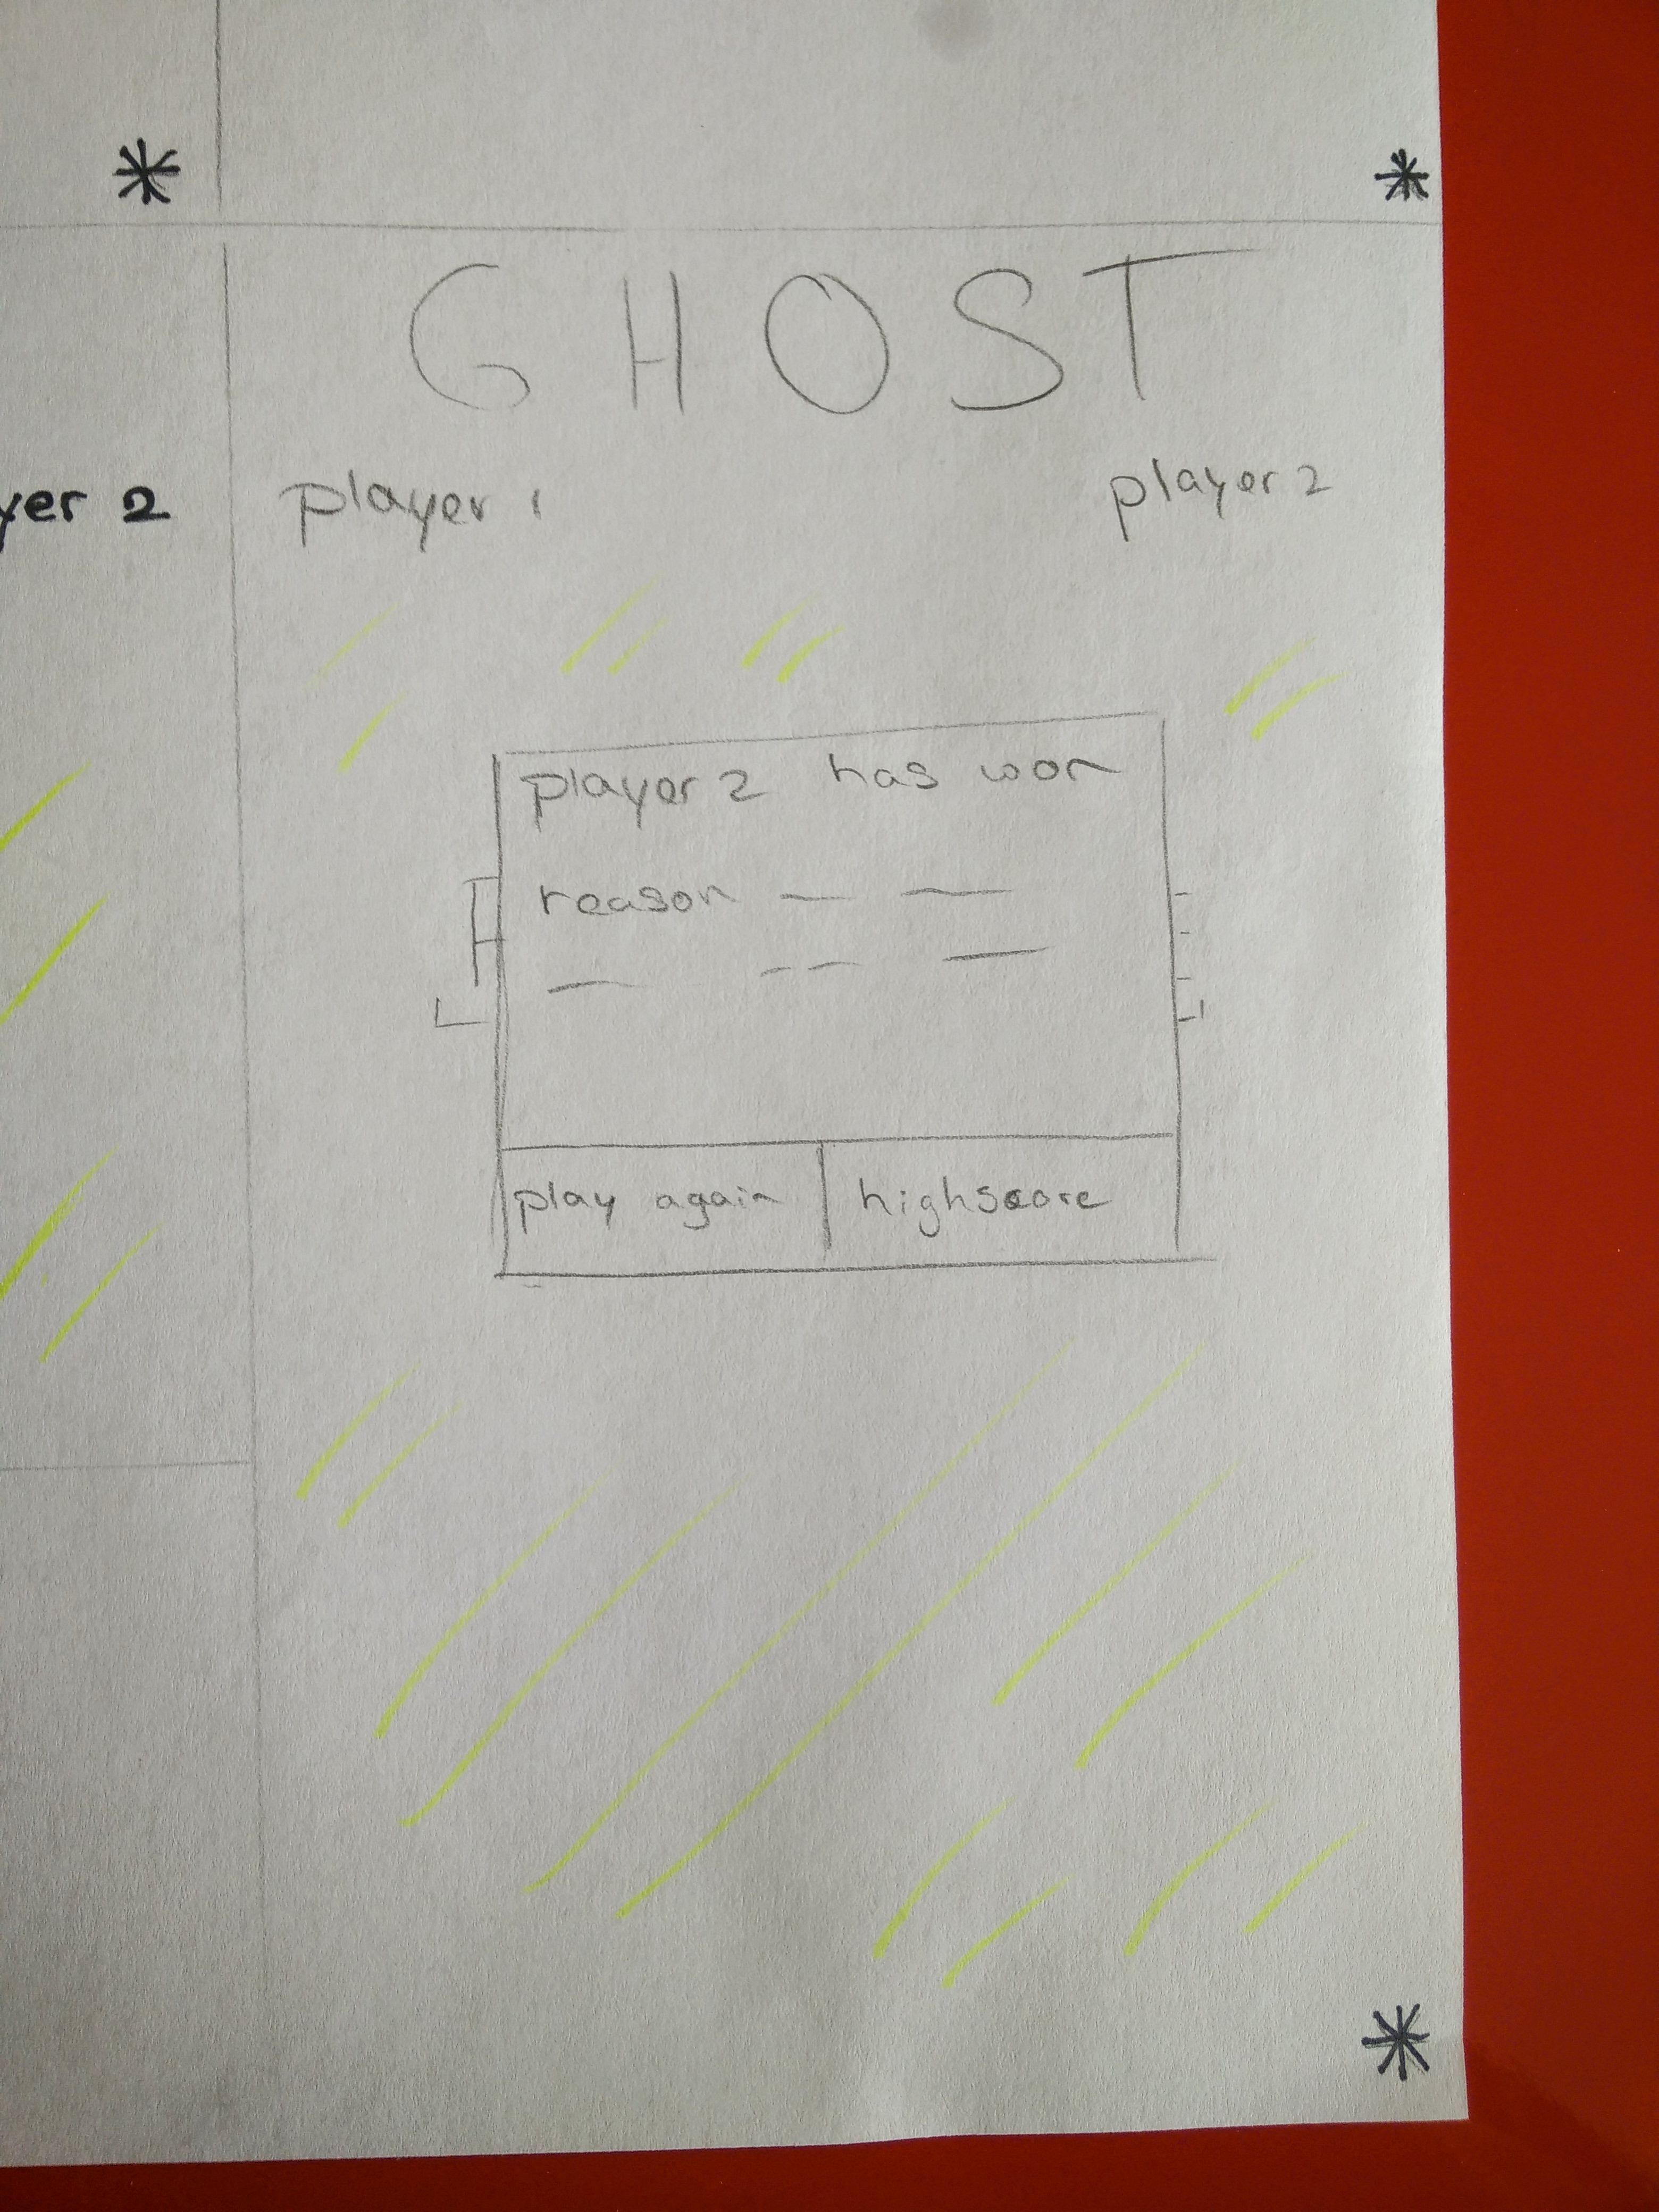 GHOST
yer 2
player 1
player 2
player 2 has won
reason
play again
highscore